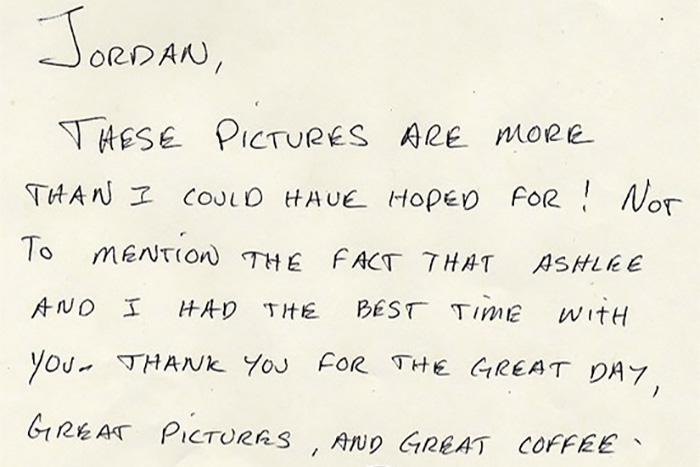 JORDAN,
THESE PICTURES ARE MORE
THAN I COULD HAVE HOPED FOR! NOT
TO MENTION THE FACT THAT ASHLEE
AND I HAD THE BEST TIME WITH
YOU. THANK YOU FOR THE GREAT DAY,
GREAT PICTURES, AND GREAT COFFEE.